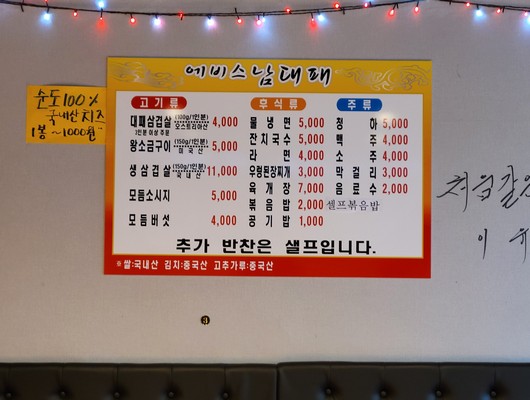 순도100%
국내산 치즈
1봉~1000원
에비스남대패
고기류
대패삼겹살 (100g/1인분) 4,000
3인분 이상 주문 오스트리아산
왕소금구이 (150g/1인분) 5,000
생삼겹살 (150g/1인분) 11,000
모둠소시지 5,000
모둠버섯 4,000
후식류
물냉면 5,000
잔치국수 5,000
라면 4,000
우렁된장찌개 3,000
육개장 7,000
볶음밥 2,000 셀프볶음밥
공기밥 1,000
주류
청하 5,000
맥주 4,000
소주 4,000
막걸리 3,000
음료수 2,000
추가 반찬은 샐프입니다.
※쌀:국내산 김치:중국산 고추가루:중국산
처음같은
이